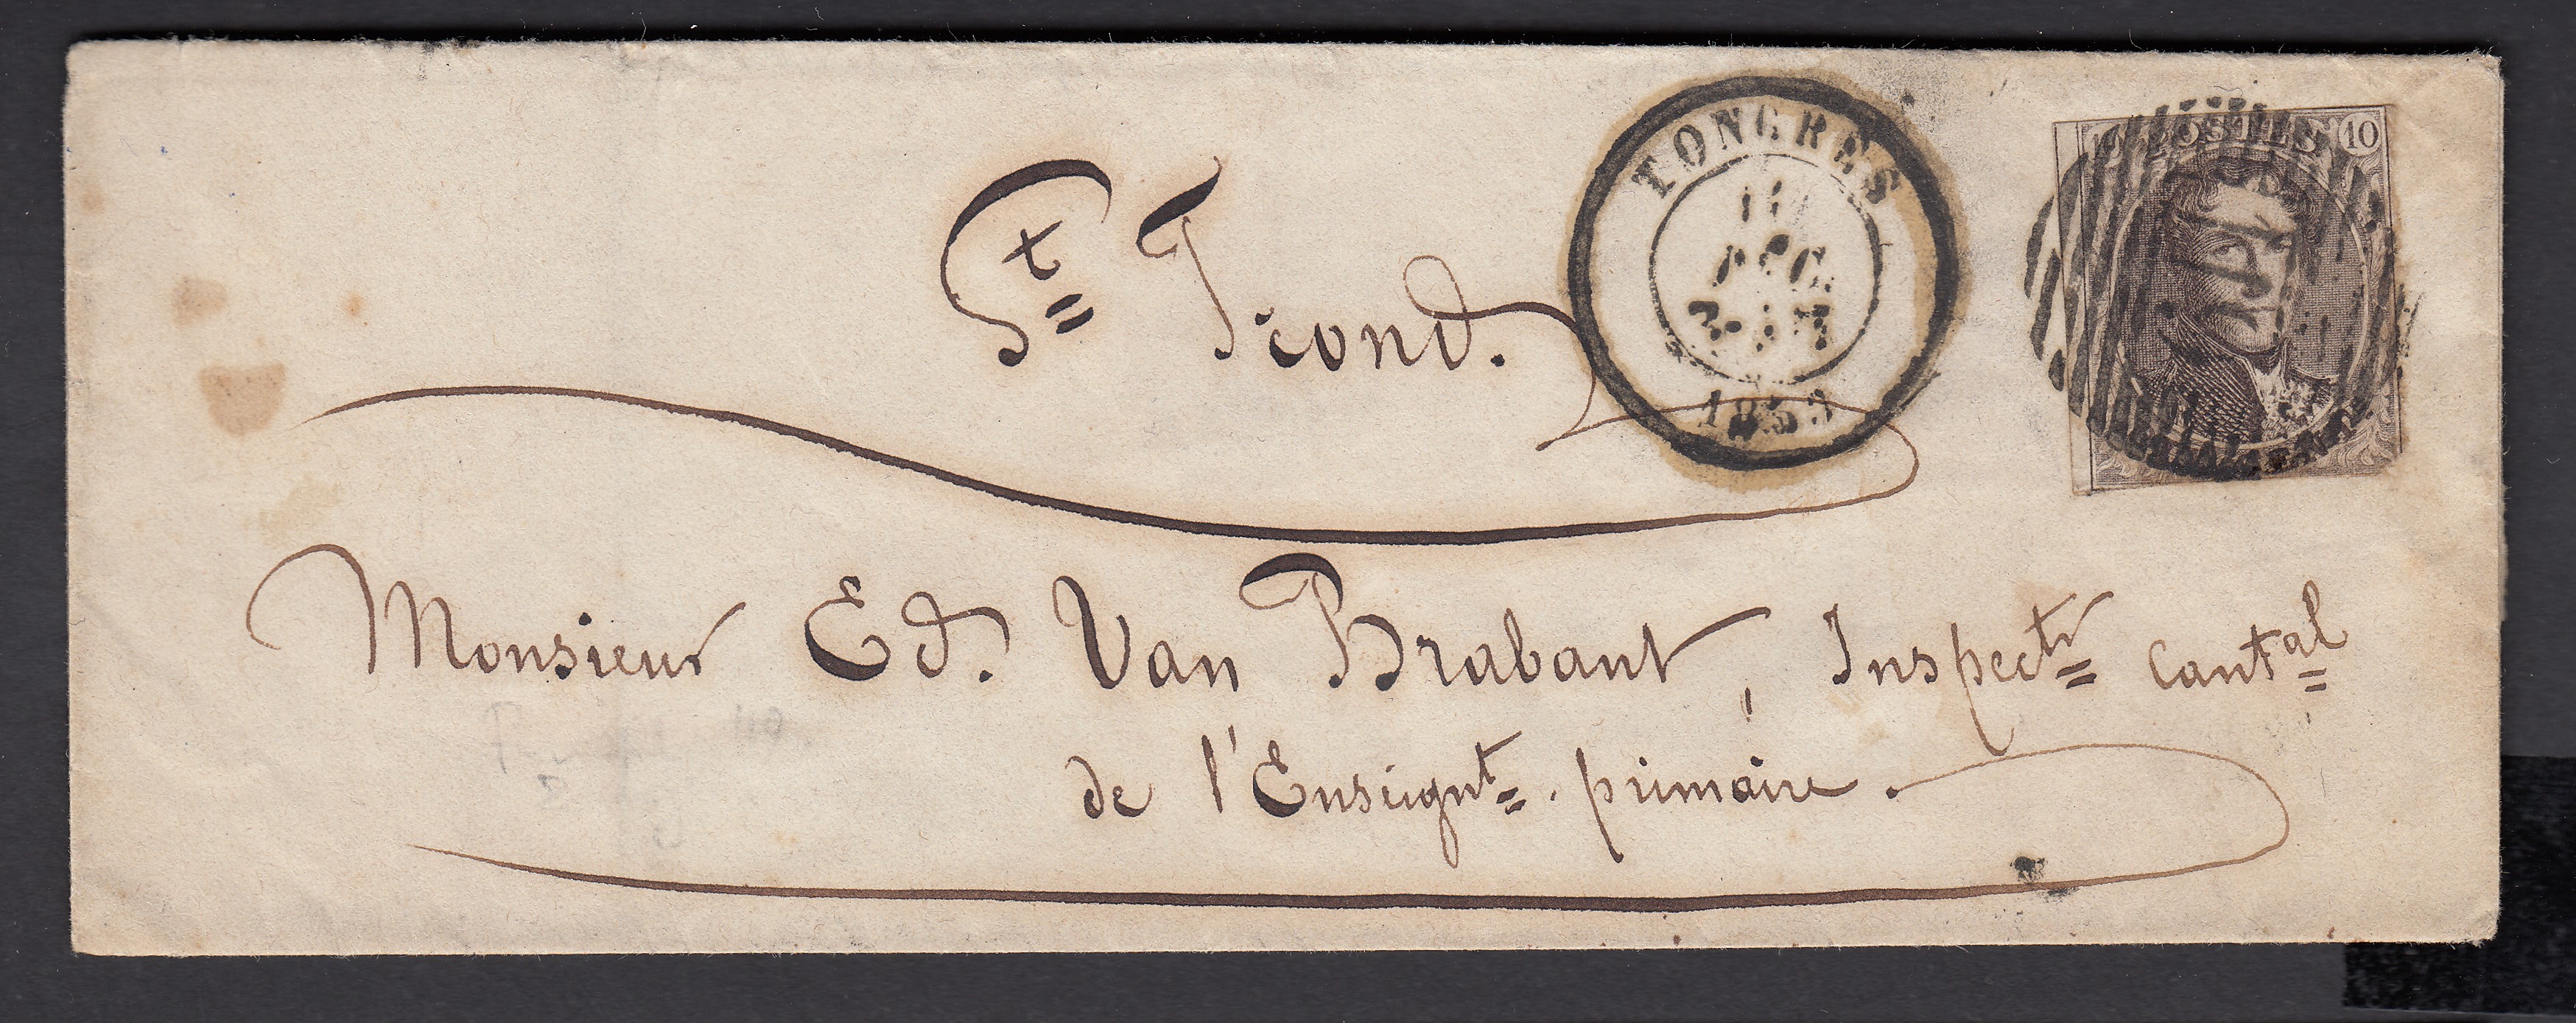 POSTES 10
TONGRES
11
DEC
1853
St Trond.
Monsieur Ed. Van Brabant, Inspectr Cantal
de l'Enseignt primaire.